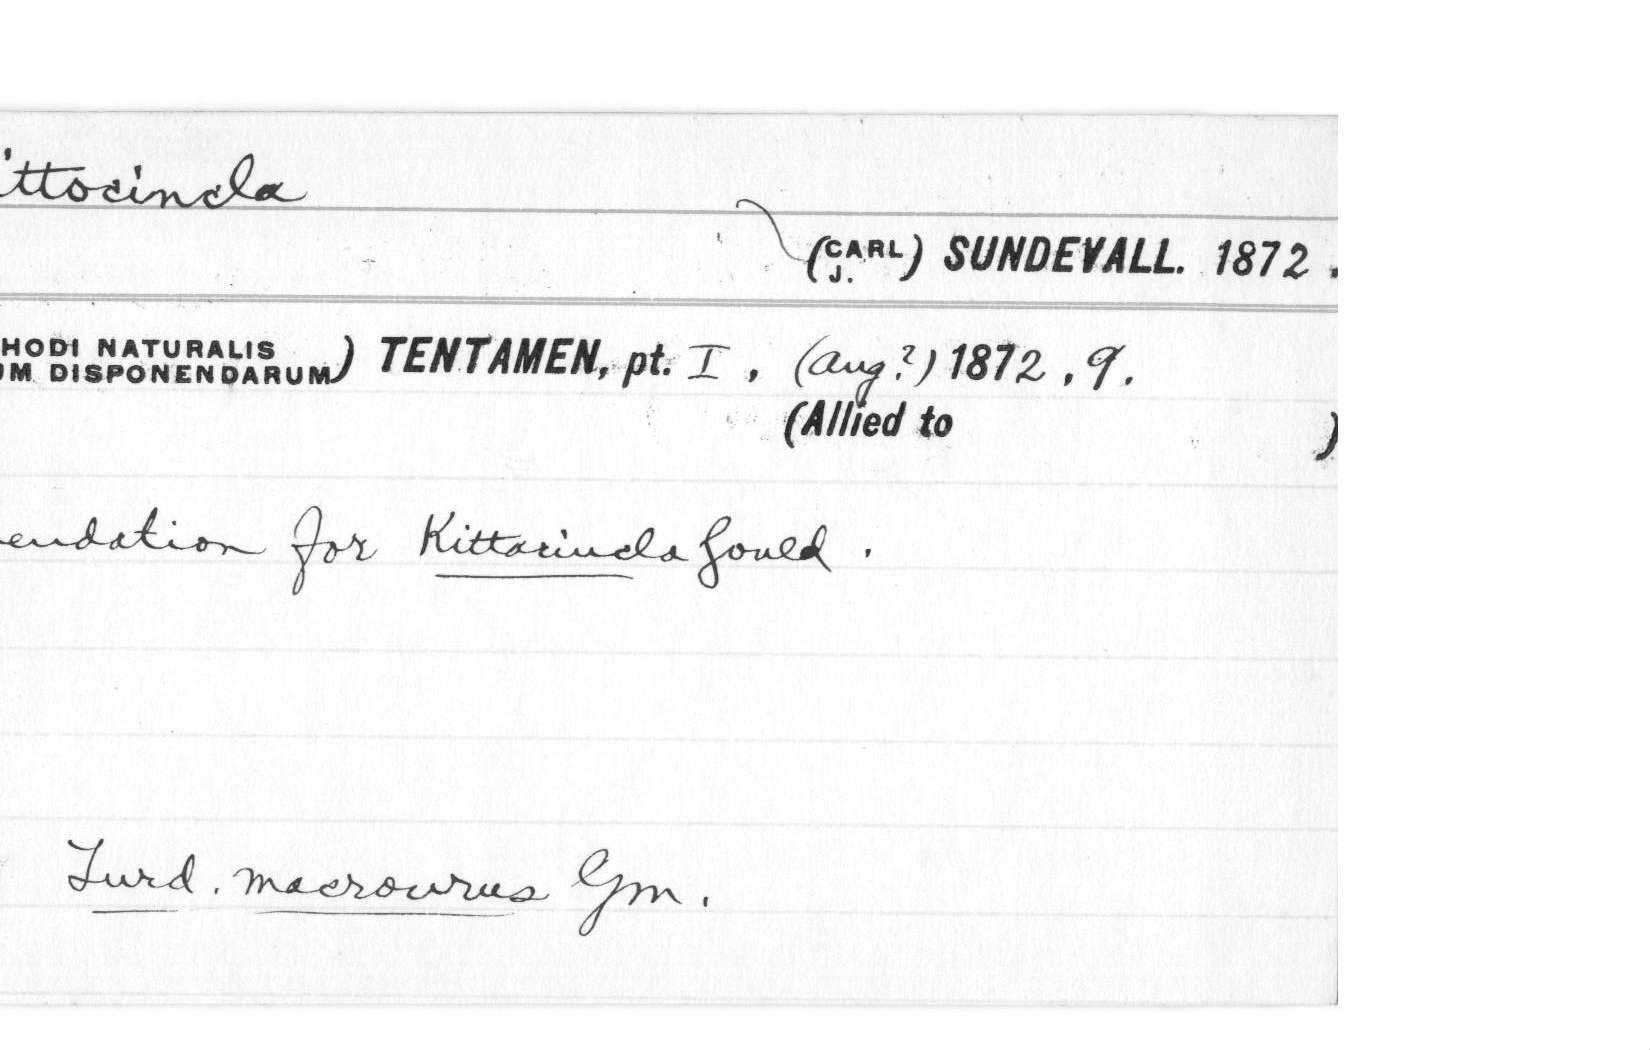 ittocincla
(CARL J.) SUNDEVALL. 1872.
HODI NATURALIS
UM DISPONENDARUM) TENTAMEN, pt. I, (Aug?) 1872, 9.
(Allied to )
endation for Kittacincla Gould.
Turd. macrourus Gm.